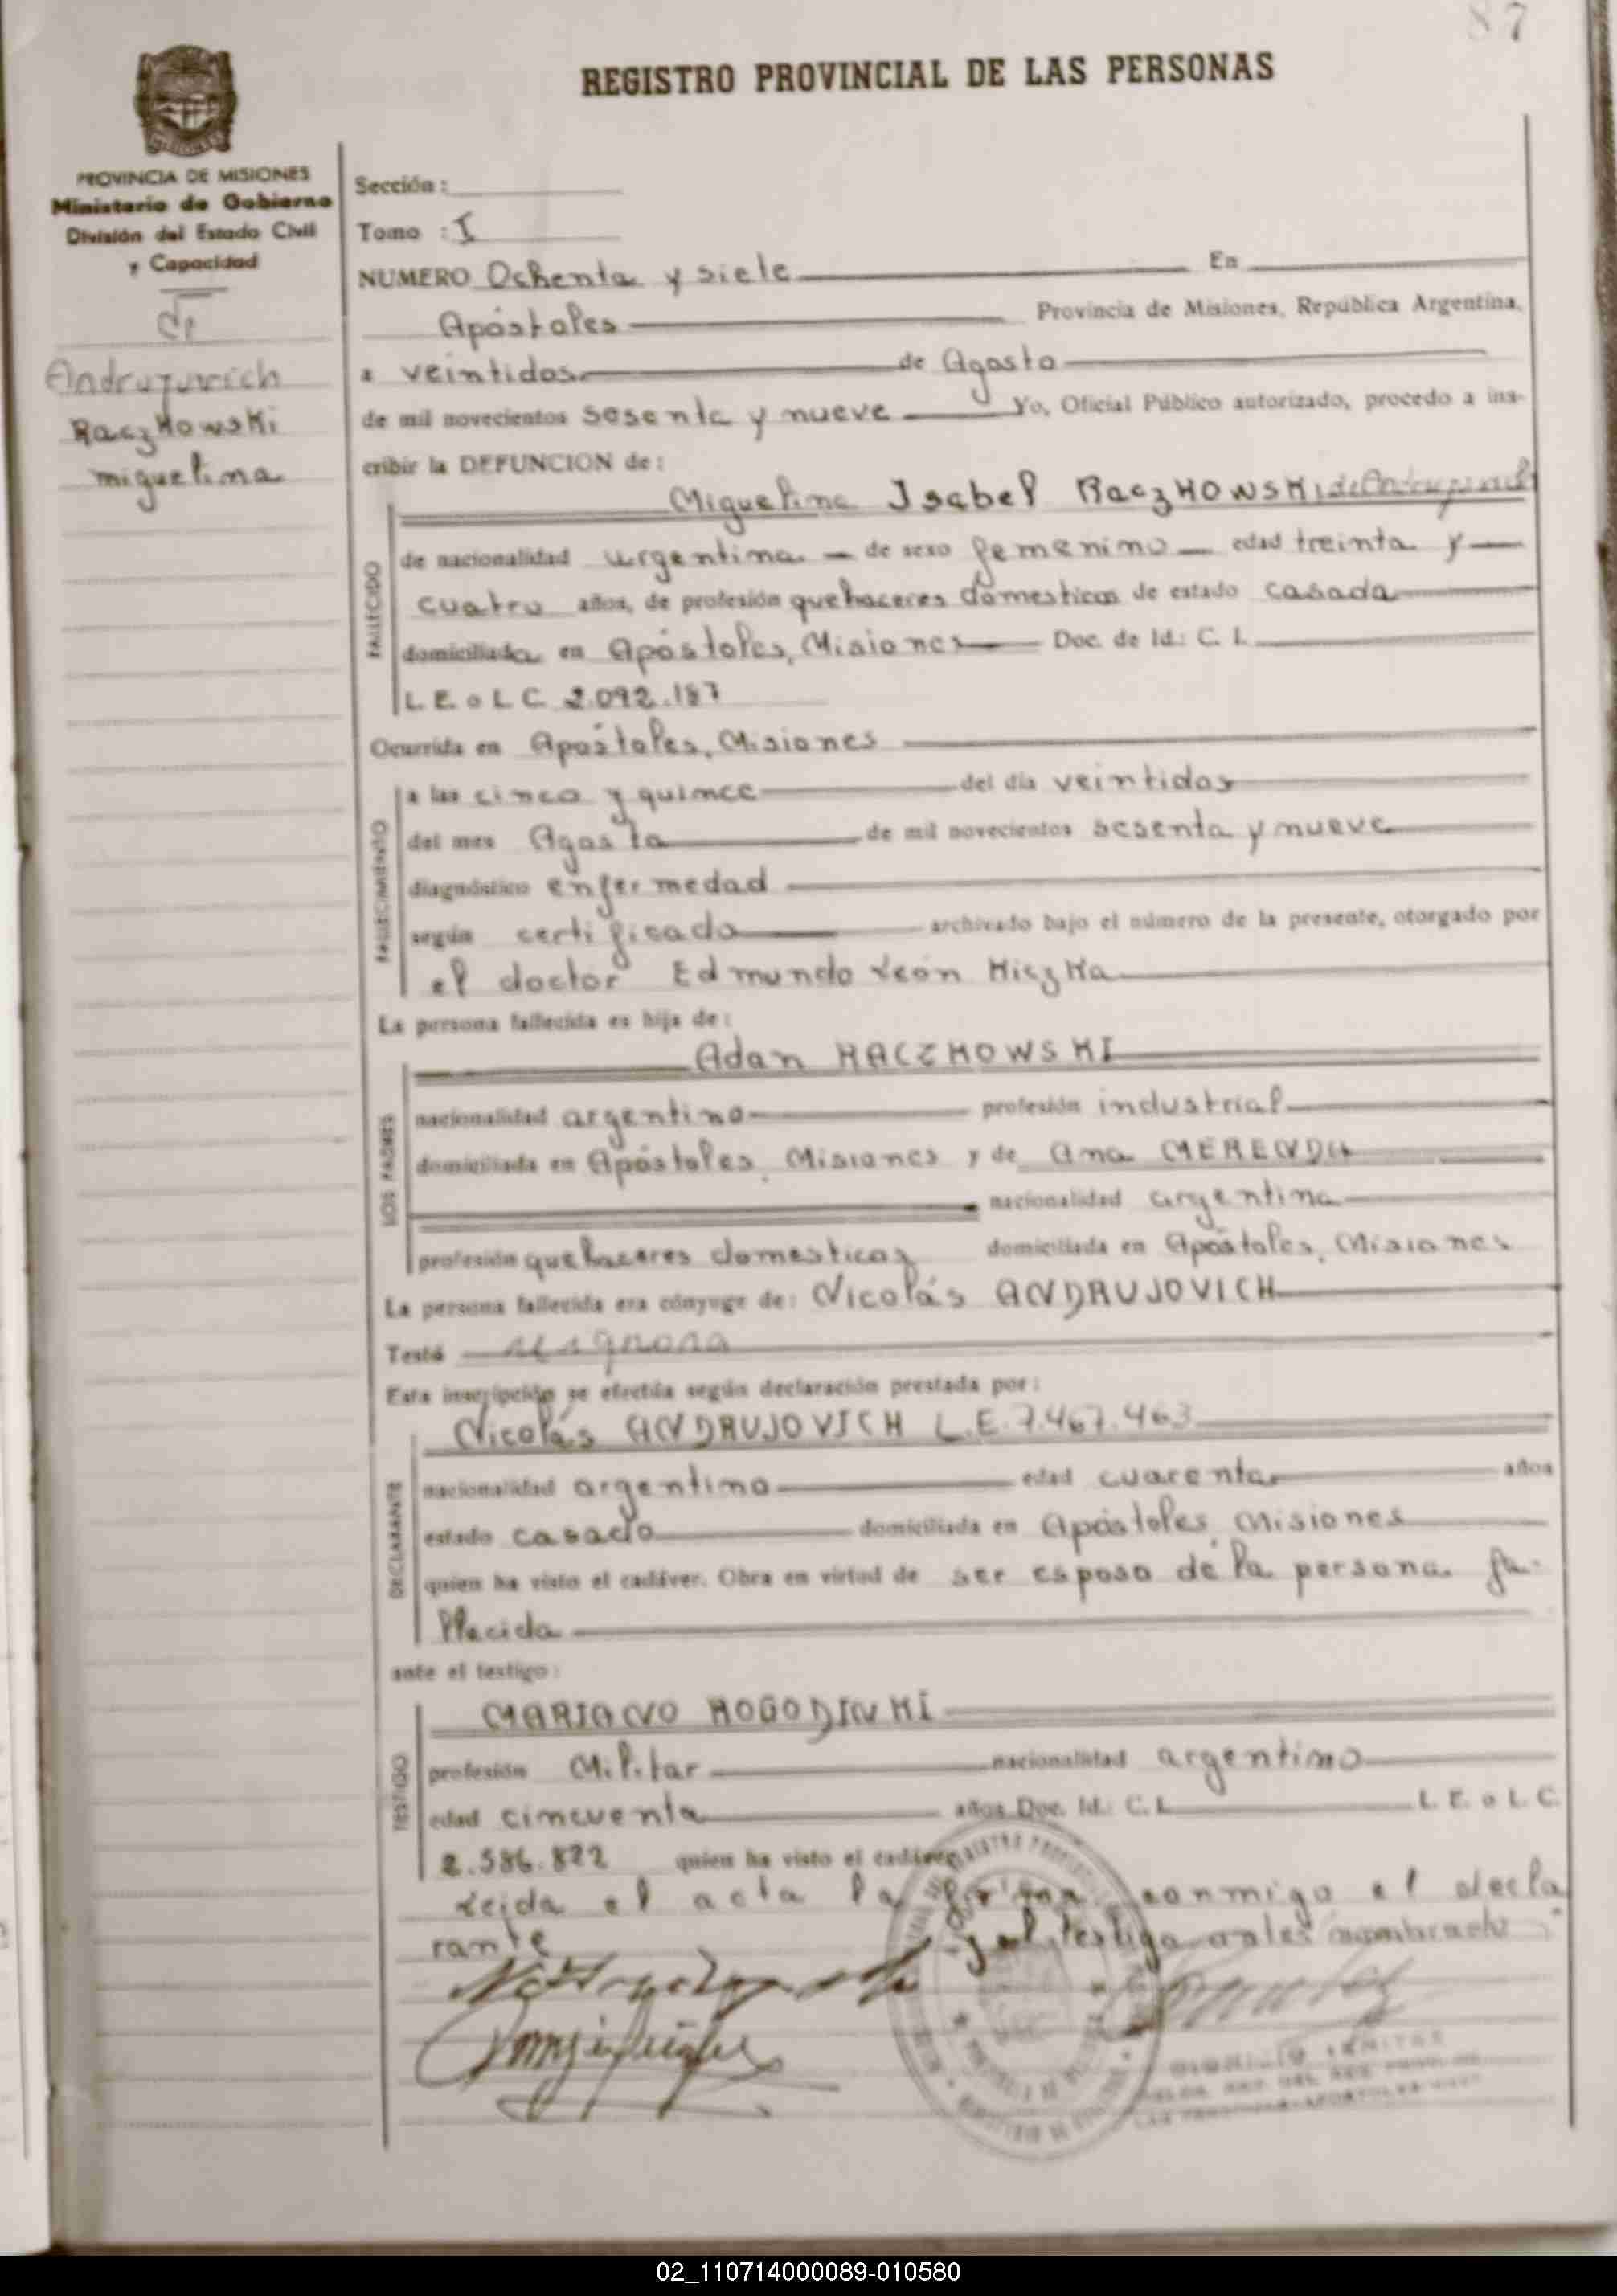 87
REGISTRO PROVINCIAL DE LAS PERSONAS
PROVINCIA DE MISIONES
Ministerio de Gobierno
División del Estado Civil
y Capacidad
de
Andrujovich
Raczkowski
miguelina
Sección:
Tomo : I
NUMERO Ochenta y siete En
Apóstoles Provincia de Misiones, República Argentina,
a veintidos de Agosto
de mil novecientos sesenta y nueve Yo, Oficial Público autorizado, procedo a ins-
cribir la DEFUNCION de:
Miguelina Isabel RaczKOWSKI de Andrujovich
FALLECIDO
de nacionalidad argentina de sexo femenino edad treinta y
cuatro años, de profesión quehaceres domesticos de estado casada
domiciliada en Apóstoles, Misiones Doc. de Id.: C. I.
L E o L C 2.092.187
Ocurrida en Apóstoles, Misiones
FALLECIMIENTO
a las cinco y quince del día veintidos
del mes Agosto de mil novecientos sesenta y nueve
diagnóstico enfermedad
según certificado archivado bajo el número de la presente, otorgado por
el doctor Edmundo León Kiczka
La persona fallecida es hija de:
Adan RACZKOWSKI
LOS PADRES
nacionalidad argentino profesión industrial
domiciliada en Apóstoles, Misiones y de Ana MERENDA
nacionalidad argentina
profesión quehaceres domesticos domiciliada en Apóstoles, Misiones
La persona fallecida era cónyuge de: Nicolás ANDRUJOVICH
Testó se ignora
Esta inscripción se efectúa según declaración prestada por:
Nicolás ANDRUJOVICH L.E. 7.467.463
DECLARANTE
nacionalidad argentino edad cuarenta años
estado casado domiciliada en Apóstoles, Misiones
quien ha visto el cadáver. Obra en virtud de ser esposo de la persona fa-
llecida
ante el testigo:
MARIANO
TESTIGO
profesión Militar nacionalidad argentino
edad cincuenta años Doc. Id.: C. I. L. E. o L. C.
2.586.822 quien ha visto el cadáver
Leida el acta la firman conmigo el decla
rante y el testigo antes nombrado
02_110714000089-010580